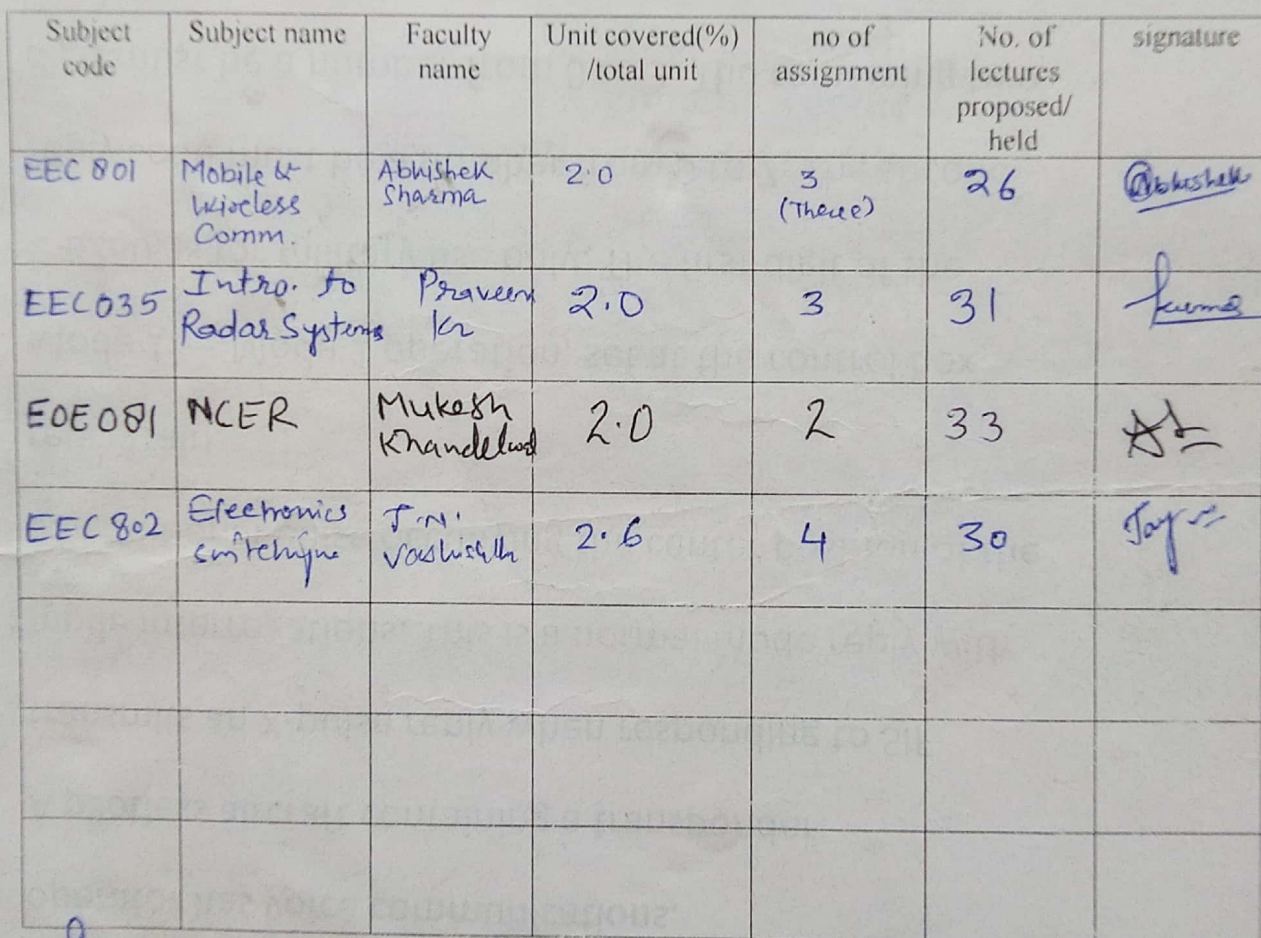 Subject code
Subject name
Faculty name
Unit covered(%) /total unit
no of assignment
No. of lectures proposed/ held
signature
EEC 801
Mobile &
Wireless
Comm.
Abhishek
Sharma
2.0
3
(Theree)
26
Abhishek
EEC035
Intro. to
Radar Systems
Praveen
Kr
2.0
3
31
kumar
EOE081
NCER
Mukesh
Khandelwal
2.0
2
33
EEC 802
Electronics
switching
J.N.
Vashisth
2.6
4
30